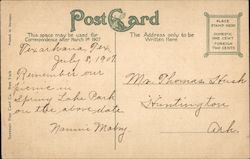 Post Card
This space may be used for
Correspondence after March 1st 1907
The address only to be
Written here
PLACE
STAMP HERE
DOMESTIC
ONE CENT
FOREIGN
TWO CENTS
Texarkana, Tex,
July 8, 1907.
Remember our
picnic in
Spring Lake Park
on the above date
Nannie Mabry.
Mr. Thomas Hush
Huntington
Ark.